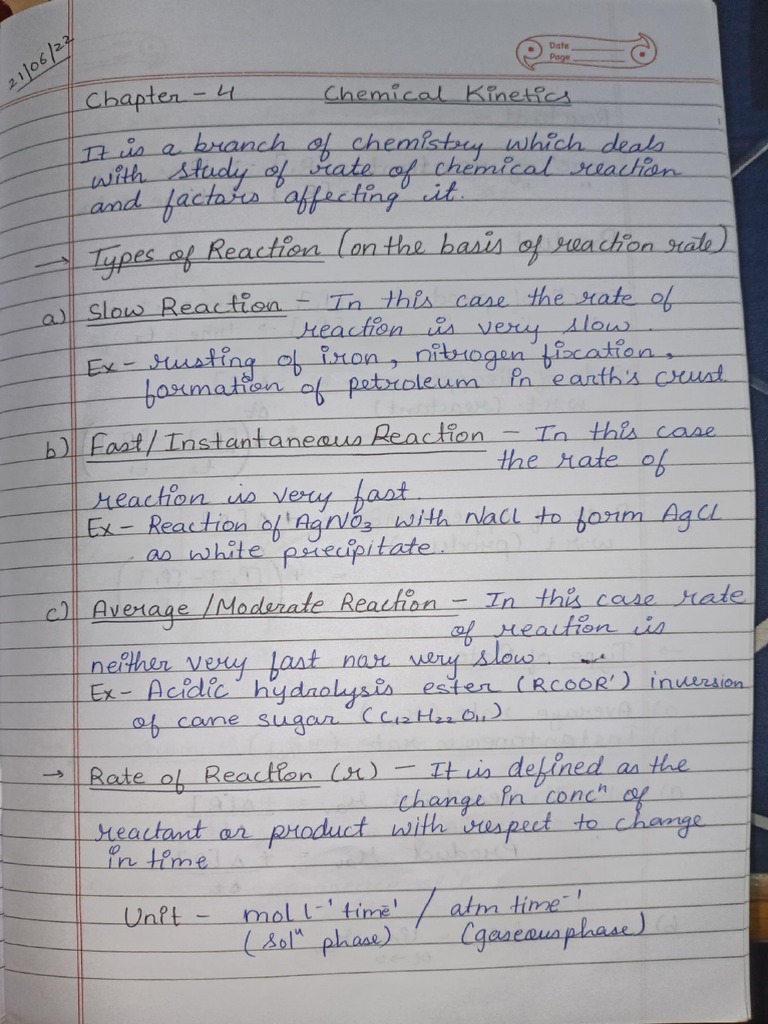 21/06/22
Date
Page
Chapter - 4 Chemical Kinetics
It is a branch of chemistry which deals
with study of rate of chemical reaction
and factors affecting it.
→ Types of Reaction (on the basis of reaction rate)
a) Slow Reaction - In this case the rate of
reaction is very slow.
Ex - rusting of iron, nitrogen fixation,
formation of petroleum in earth's crust
b) Fast/Instantaneous Reaction - In this case
the rate of
reaction is very fast.
Ex - Reaction of AgNO₃ with NaCl to form AgCl
as white precipitate.
c) Average/Moderate Reaction - In this case rate
of reaction is
neither very fast nor very slow.
Ex - Acidic hydrolysis ester (RCOOR') inversion
of cane sugar (C₁₂H₂₂O₁₁)
→ Rate of Reaction (r) - It is defined as the
change in concⁿ of
reactant or product with respect to change
in time
Unit - mol l⁻¹ time⁻¹ / atm time⁻¹
(solⁿ phase) (gaseous phase)